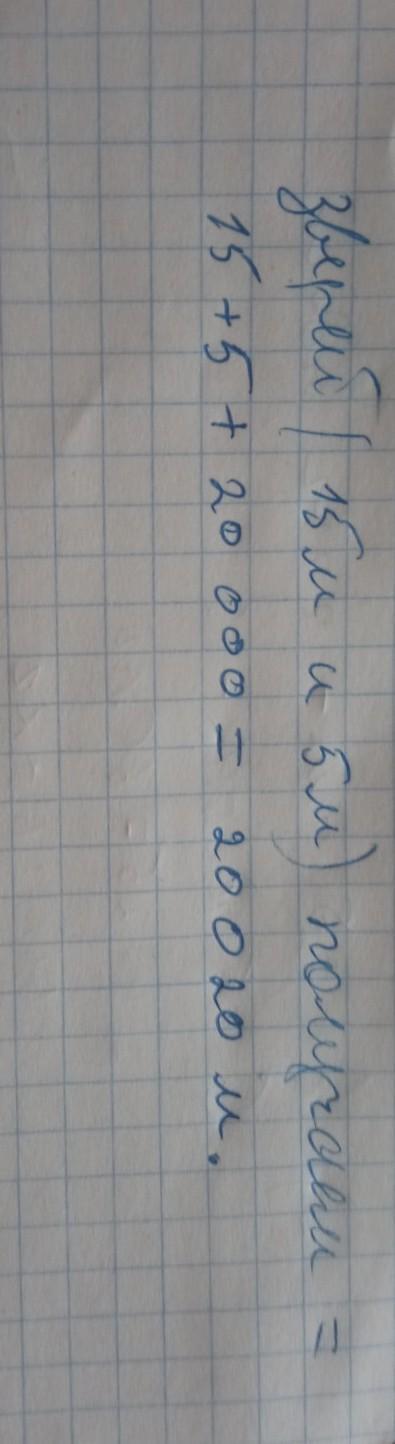 зверей (15м и 5м) получаем =
15 + 5 + 20 000 = 20020 м.